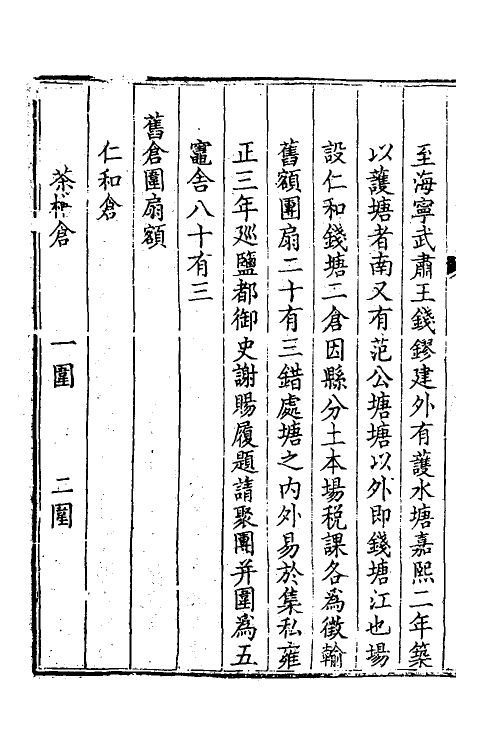 至海寧武肅王錢鏐建外有護水塘嘉熙二年築
以護塘者南又有范公塘塘以外即錢塘江也場
設仁和錢塘二倉因縣分土本場稅課各為徵輸
舊額團扇二十有三錯處塘之內外易於集私雍
正三年廵鹽都御史謝賜履題請聚團并圍為五
竈舍八十有三
舊倉團扇額
仁和倉
茶槽倉　一圍　二圍